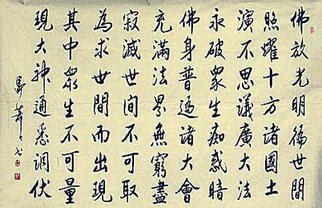 佛放光明徧世間
照耀十方諸國土
演不思議廣大法
永破眾生痴惑暗
佛身普遍諸大會
充滿法界無窮盡
寂滅世间不可取
為求世間而出現
其中眾生不可量
現大神通悉調伏